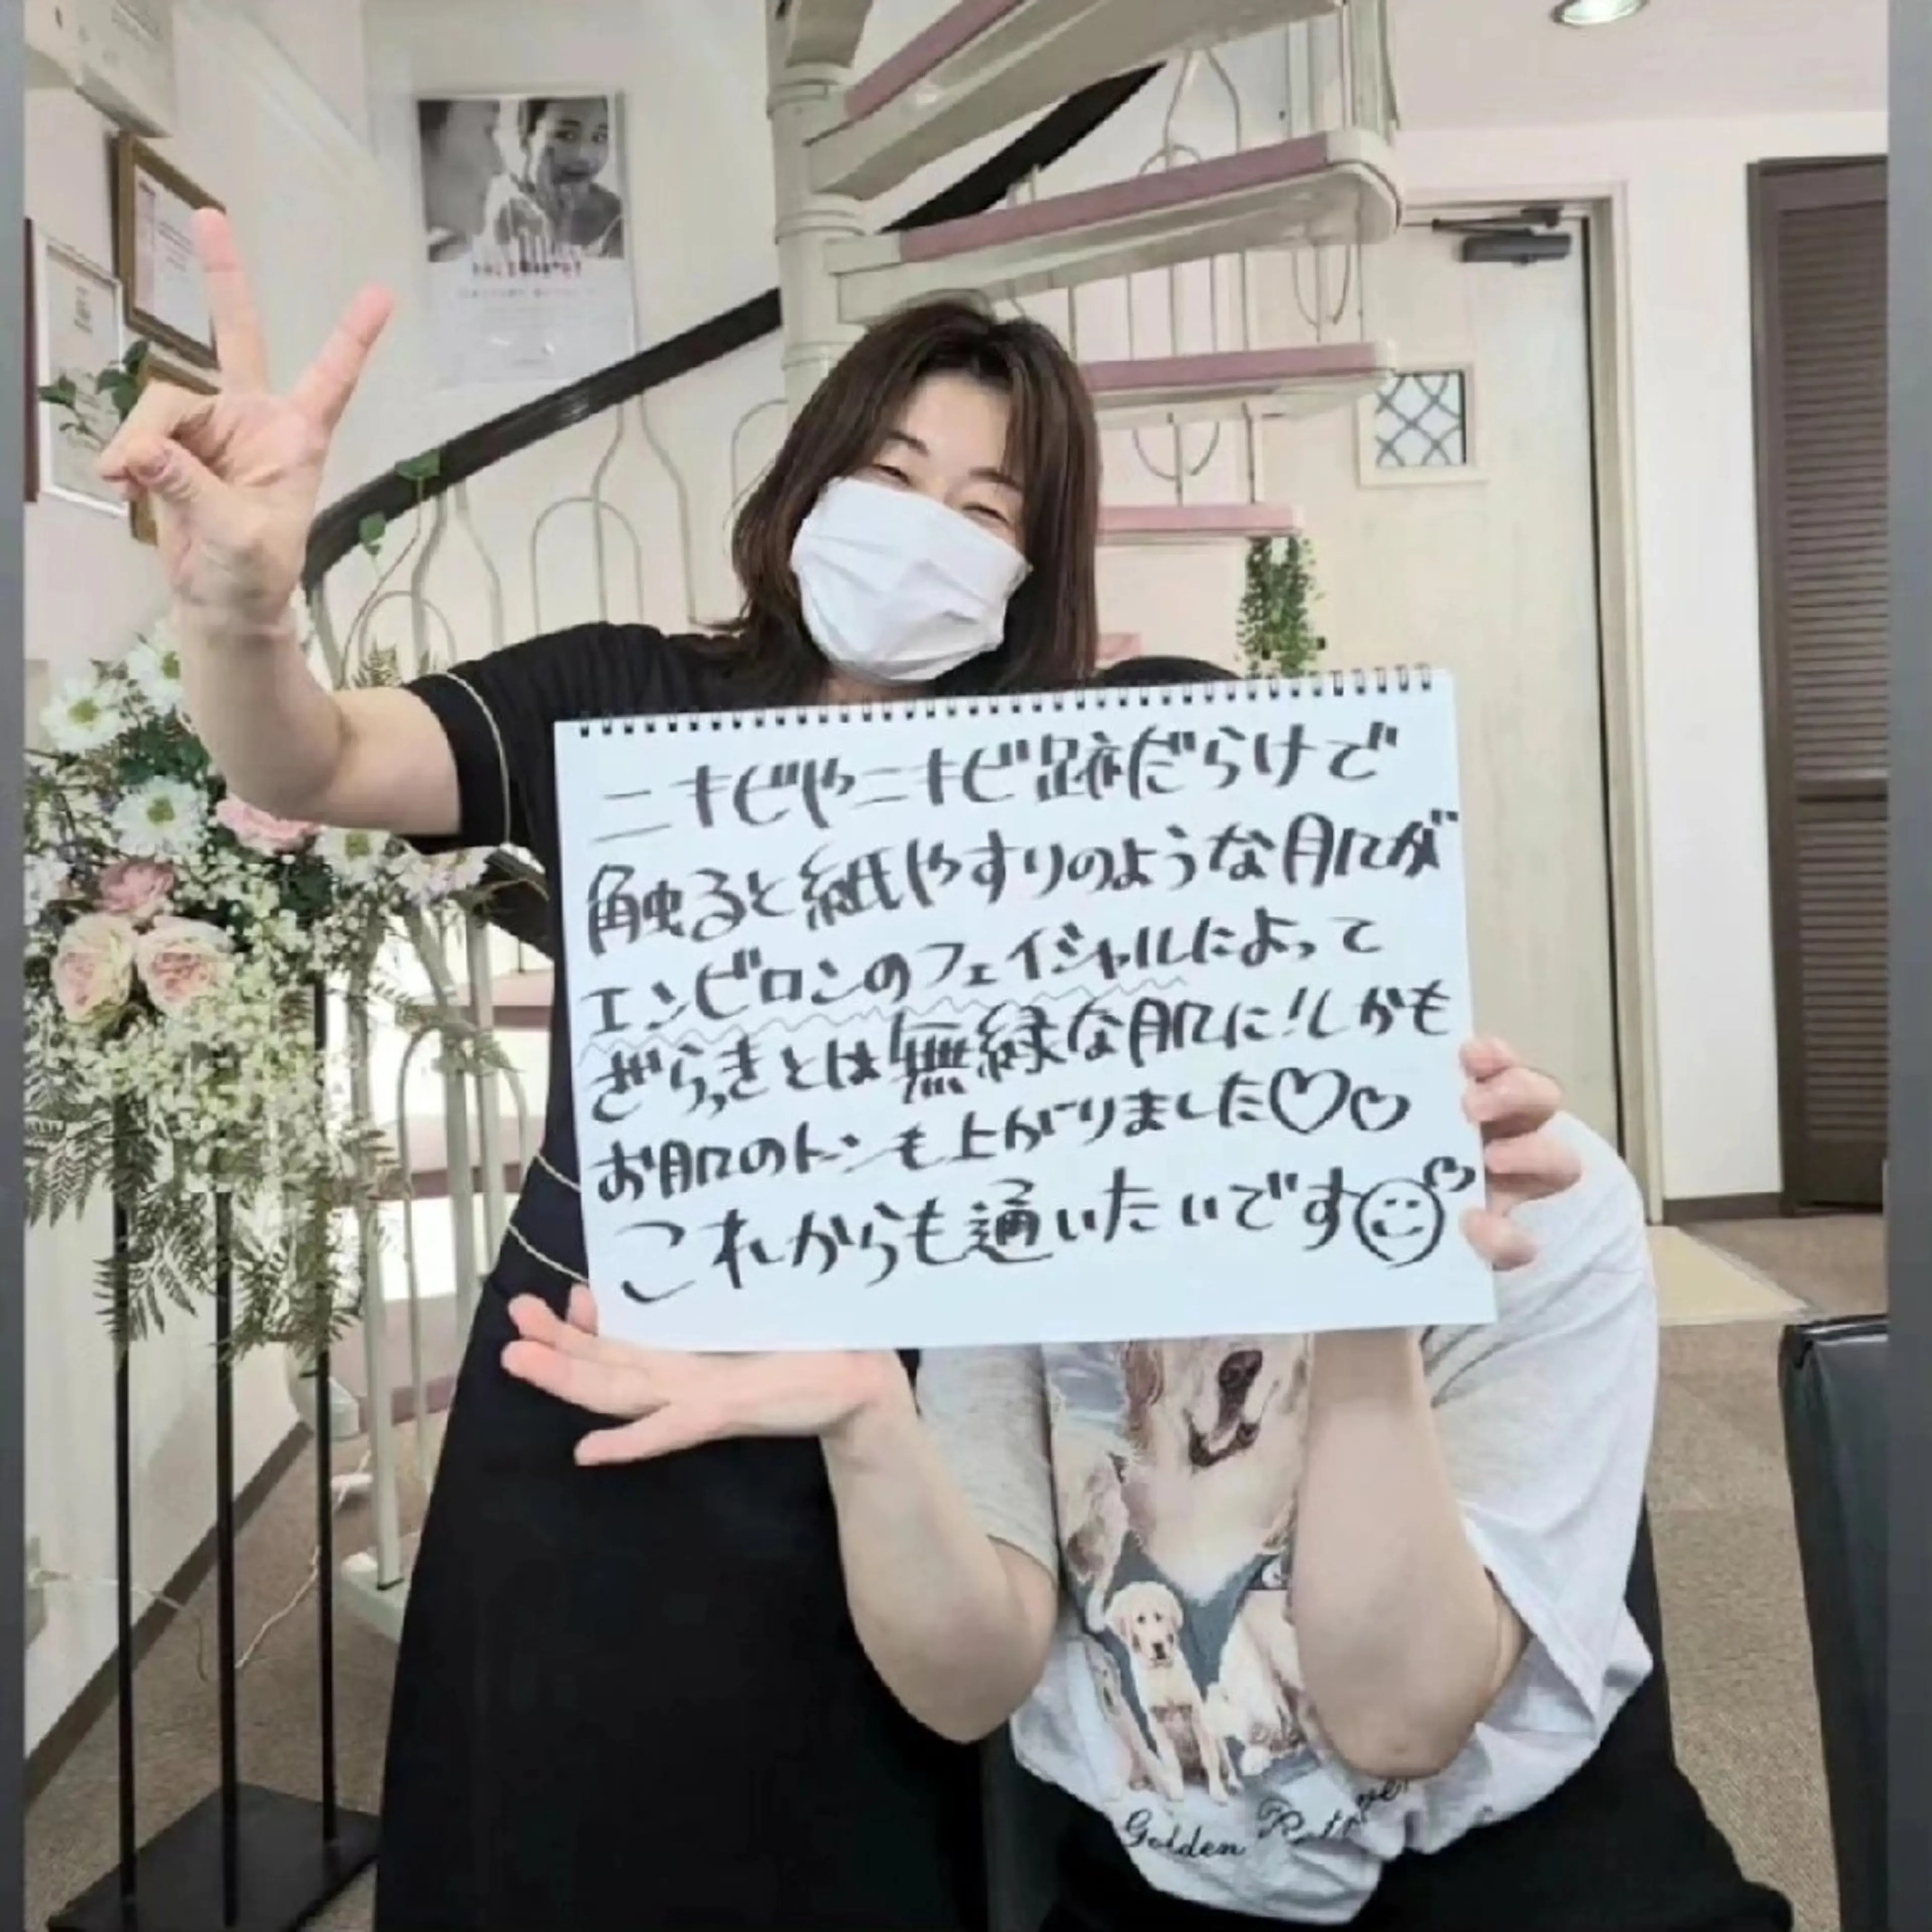 ニキビやニキビ跡だらけで
触ると紙やすりのような肌が
エンビロンのフェイシャルによって
ざらつきとは無縁な肌に!しかも
お肌のトーンも上がりました♡♡
これからも通いたいです
Golden Retriever